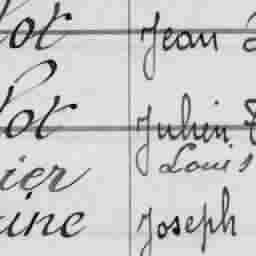 lot Jean
lot Julien
Louis
ier
ine Joseph